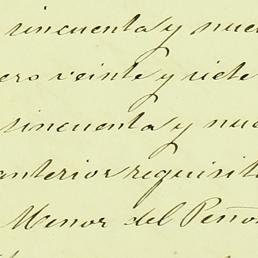 cincuenta y nue
ero veinte y siete
cincuenta y nu
anterior requisit
Menor del Peño